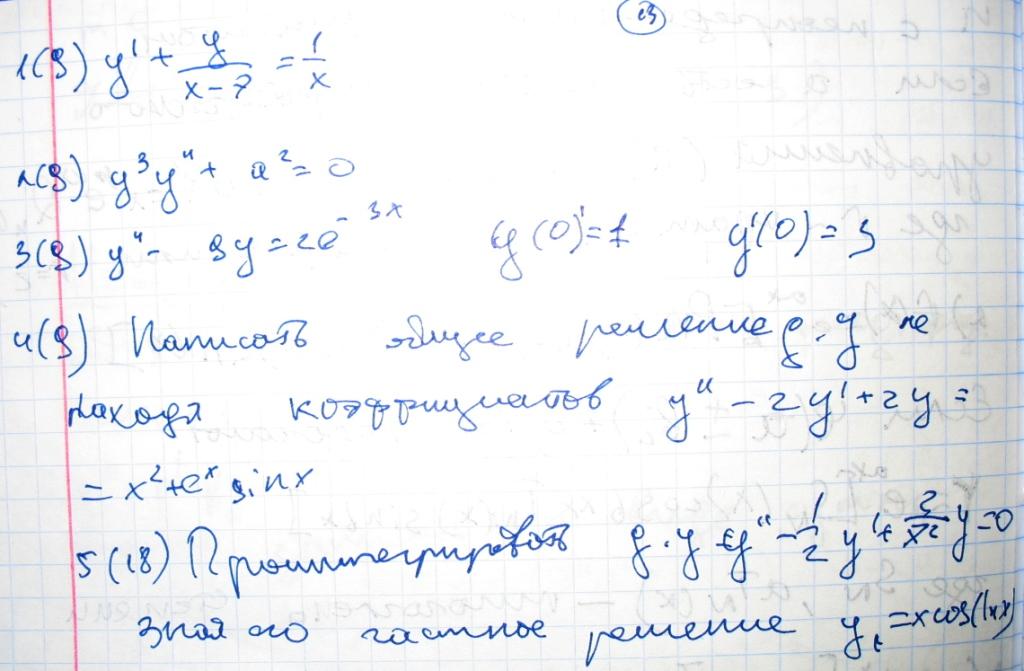 23
1(9) y' + y/(x-7) = 1/x
2(9) y³y'' + a² = 0
3(9) y'' - 9y = 2e^(-3x) y(0) = 1 y'(0) = 3
4(9) Написать общее решение д.у не
находя коэффициатов y'' - 2y' + 2y =
= x² + eˣ sin x
5(18) Проинтегрировать д.у y'' - 1/2 y' + 2/x² y = 0
Зная его частное решение y₁ = x cos(ln x)